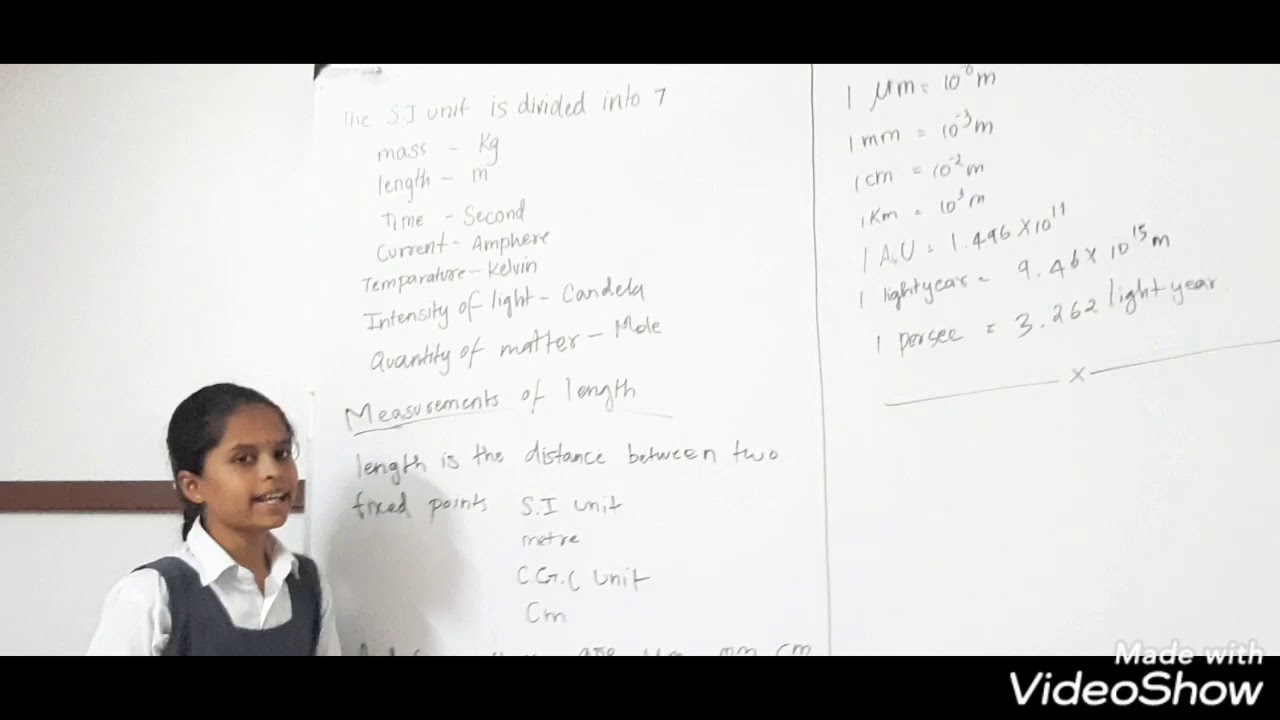 The S.I unit is divided into 7
mass - Kg
length - m
Time - Second
Current - Amphere
Temparature - Kelvin
Intensity of light - Candela
Quantity of matter - Mole
Measurements of length
length is the distance between two
fixed points S.I unit
metre
C.G.C unit
Cm
are μm mm cm
1 μm = 10⁻⁶ m
1 mm = 10⁻³ m
1 cm = 10⁻² m
1 Km = 10³ m
1 A.U = 1.496 X 10¹¹
1 lightyear = 9.46 X 10¹⁵ m
1 persec = 3.262 light year
x
Made with
VideoShow